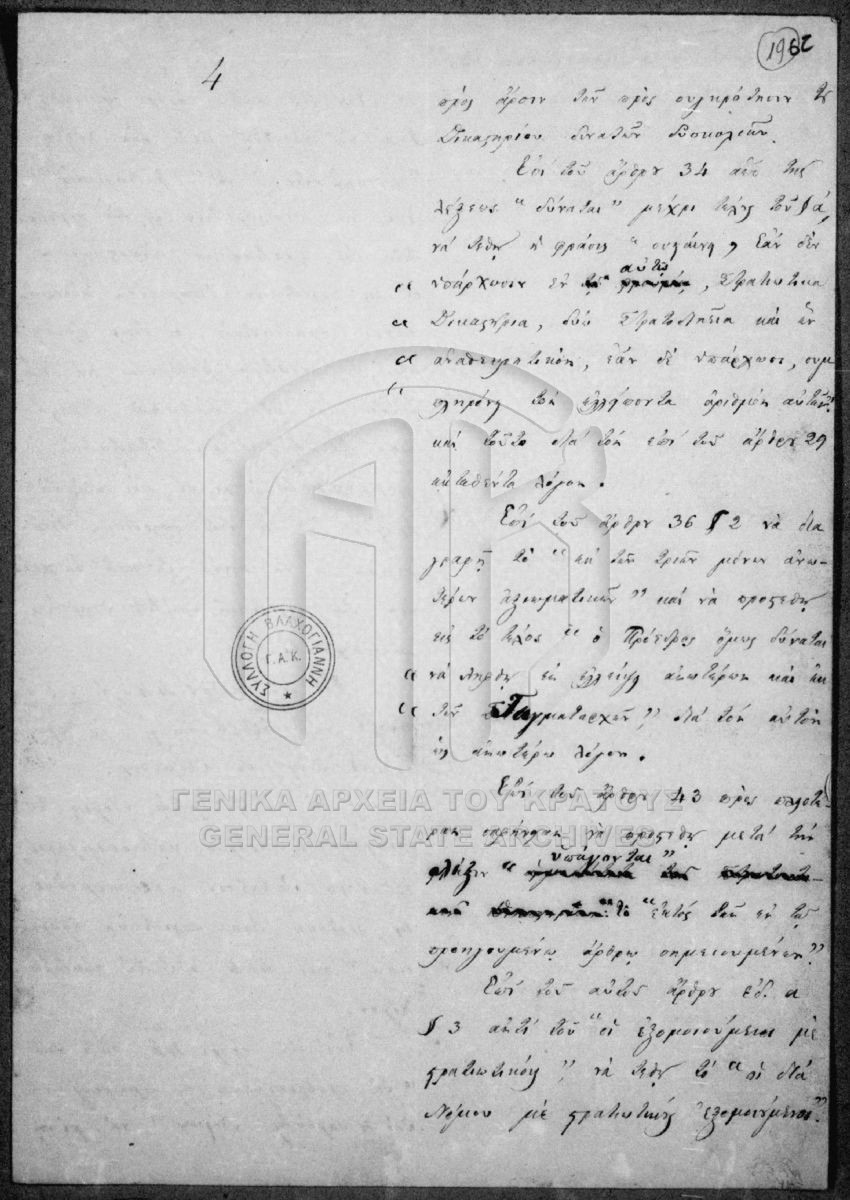 4
1962
πρὸς ἄρσιν τῶν πρὸς συγκρότησιν τοῦ
Δικαστηρίου δυνατῶν δυσκολιῶν.
Ἐπὶ τοῦ ἄρθρου 34 ἀπὸ τῆς
λέξεως "δύναται" μέχρι τέλους τοῦ § ά,
νὰ τεθῇ ἡ φράσις " ἐὰν δὲν
ὑπάρχωσιν ἐν αὐτῷ, Στρατιωτικὰ
Δικαστήρια, δύο Στρατοδικεῖα καὶ ἓν
ἀναθεωρητικὸν, ἐὰν δὲ ὑπάρχωσι, συμ
πληρόνῃ τὸν ἐλλείποντα ἀριθμὸν αὐτῶν"
καὶ τοῦτο διὰ τὸν ἐπὶ τοῦ ἄρθρου 29
ἐκτεθέντα λόγον.
Ἐπὶ τοῦ ἄρθρου 36 § 2 νὰ δια
γραφῇ τὸ "ἐκ τῶν τριῶν μόνων ἀνω-
τέρων ἀξιωματικῶν" καὶ νὰ προστεθῇ
εἰς τὸ τέλος "ὁ Πρόεδρος ὅμως δύναται
νὰ ληφθῇ ἐν ἐλλείψει ἀνωτέρων καὶ ἐκ
τῶν Ταγματαρχῶν", διὰ τὸν αὐτὸν
ὡς ἀνωτέρω λόγον.
Ἐπὶ τοῦ ἄρθρου 43 πρὸς
νὰ προστεθῇ μετὰ τὴν
φράσιν "ὑπάγονται"
τὸ "ἐκτὸς τῶν ἐν τῷ
προηγουμένῳ ἄρθρῳ σημειουμένων"
Ἐπὶ τοῦ αὐτοῦ ἄρθρου ἐδ. α
§ 3 ἀντὶ τοῦ "οἱ ἐξομοιούμενοι μὲ
στρατιωτικοὺς", νὰ τεθῇ τὸ "οἱ διὰ
Νόμου μὲ στρατιωτικοὺς ἐξομοιούμενοι"
ΣΥΛΛΟΓΗ ΒΛΑΧΟΓΙΑΝΝΗ
Γ.Α.Κ.
ΓΕΝΙΚΑ ΑΡΧΕΙΑ ΤΟΥ ΚΡΑΤΟΥΣ
GENERAL STATE ARCHIVES